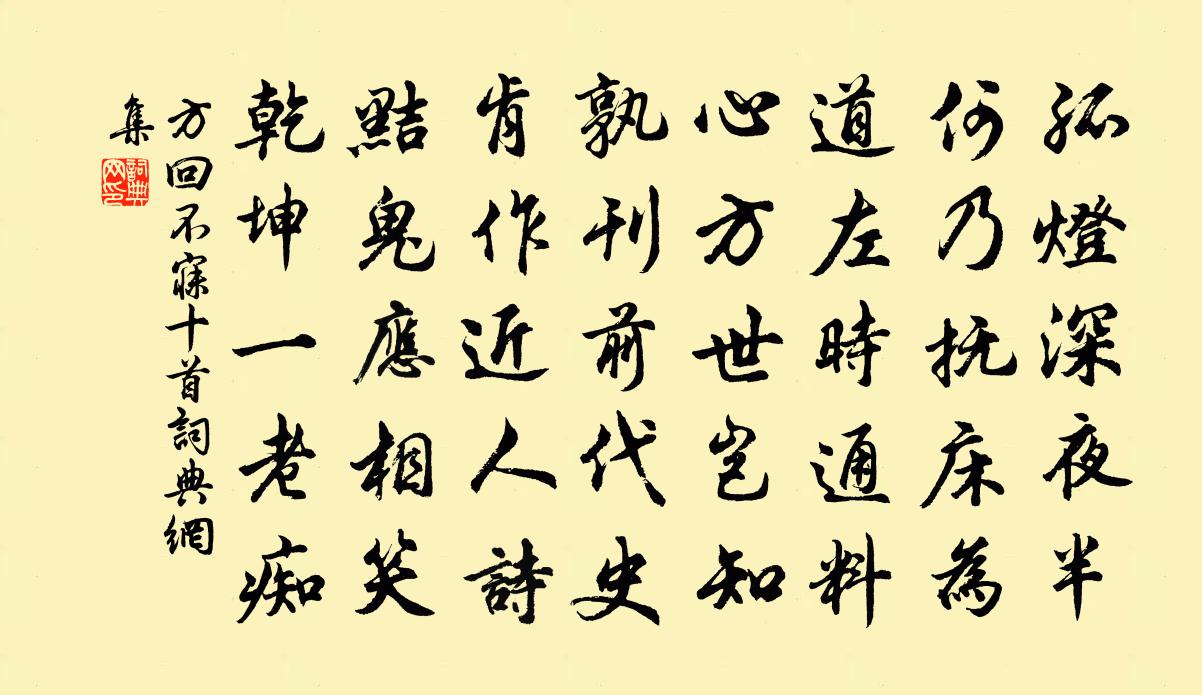 孤燈深夜半
何乃抚床為
道左時通料
心方世岂知
孰刊前代史
肯作近人詩
黠鬼應相笑
乾坤一老痴
方回不寐十首詞典網
集
詞典
网印